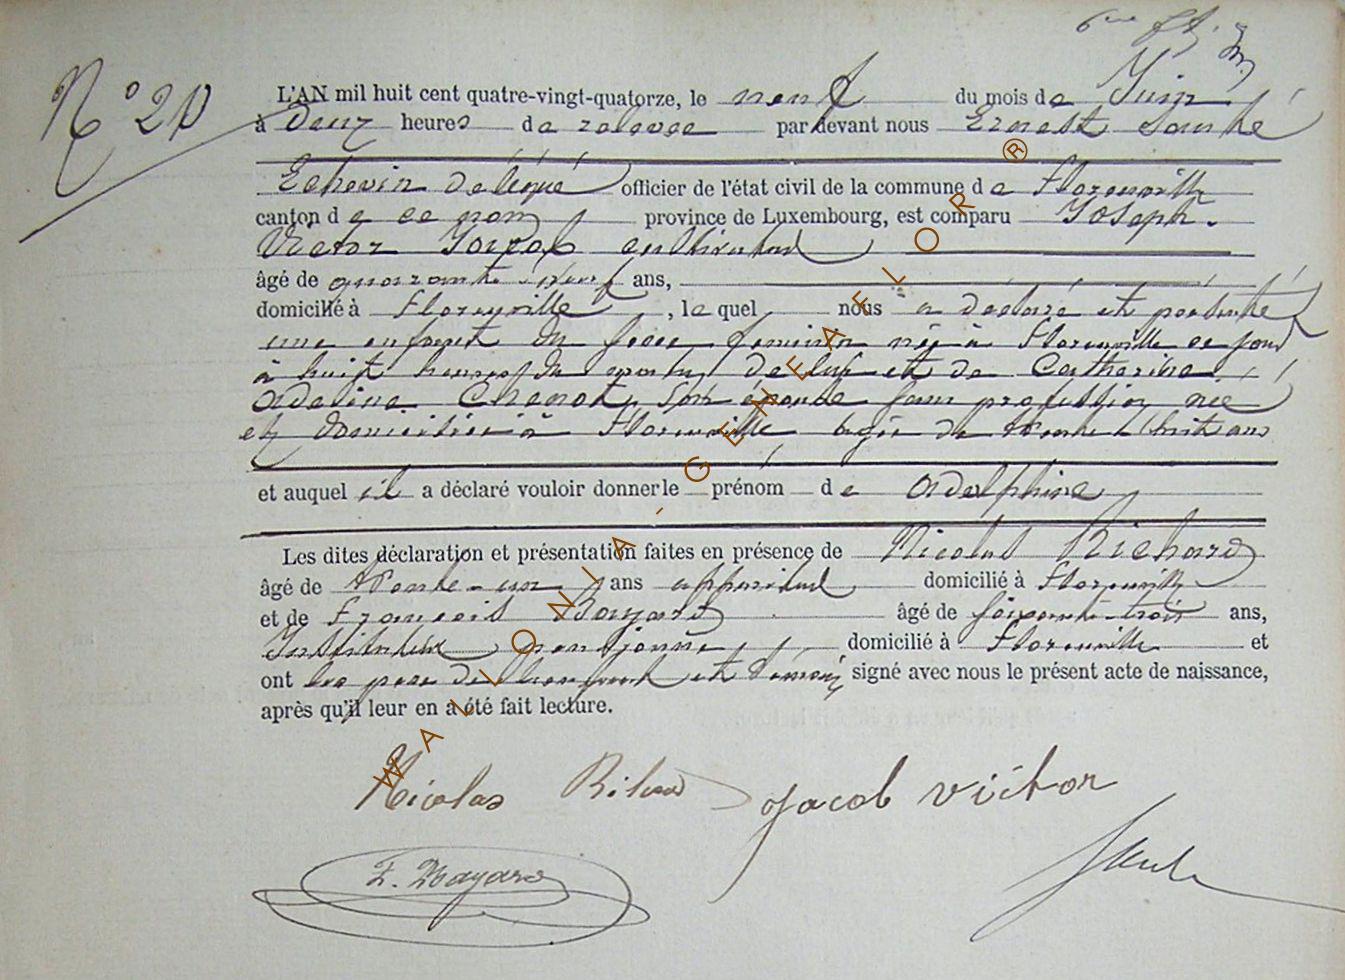 N° 20
L'AN mil huit cent quatre-vingt-quatorze, le neuf du mois de Juin
à Deux heures de relevée par devant nous Ernest
Echevin délégué officier de l'état civil de la commune de Florenville
canton de ce nom province de Luxembourg, est comparu Joseph
Victor Jacob cultivateur
âgé de quarante-neuf ans,
domicilié à Florenville, le quel nous a déclaré et présenté
une enfant du sexe féminin née à Florenville ce jour
à huit heures du matin, de lui et de Catherine
Adeline son épouse sans profession née
et domiciliée à Florenville âgée de trente-huit ans
et auquel il a déclaré vouloir donner le prénom de Adelphine
Les dites déclaration et présentation faites en présence de Nicolas Richard
âgé de trente-un ans domicilié à Florenville
et de François âgé de soixante-trois ans,
Instituteur pensionné domicilié à Florenville et
ont les père de l'enfant et témoins signé avec nous le présent acte de naissance,
après qu'il leur en a été fait lecture.
Nicolas Jacob Victor
WALLONIA-GENEAFLOR®